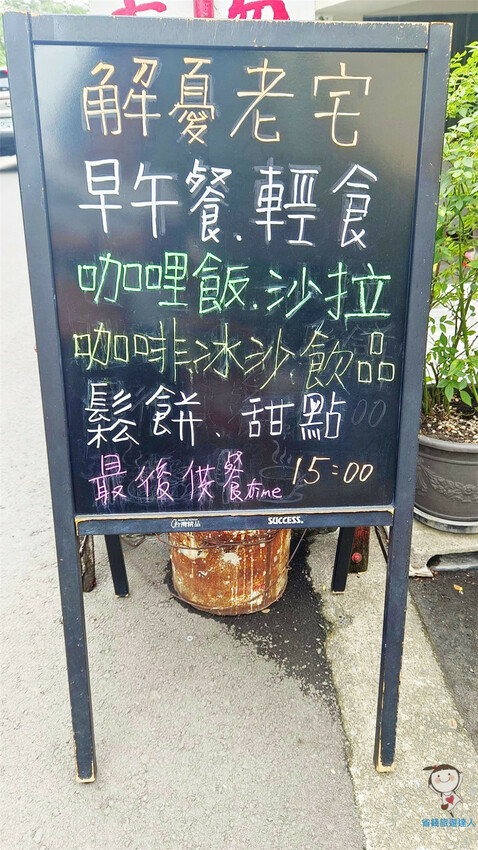 解憂老宅
早午餐、輕食
咖哩飯、沙拉
咖啡、冰沙、飲品
鬆餅、甜點
最後供餐time 15:00
SUCCESS.
省錢旅遊達人